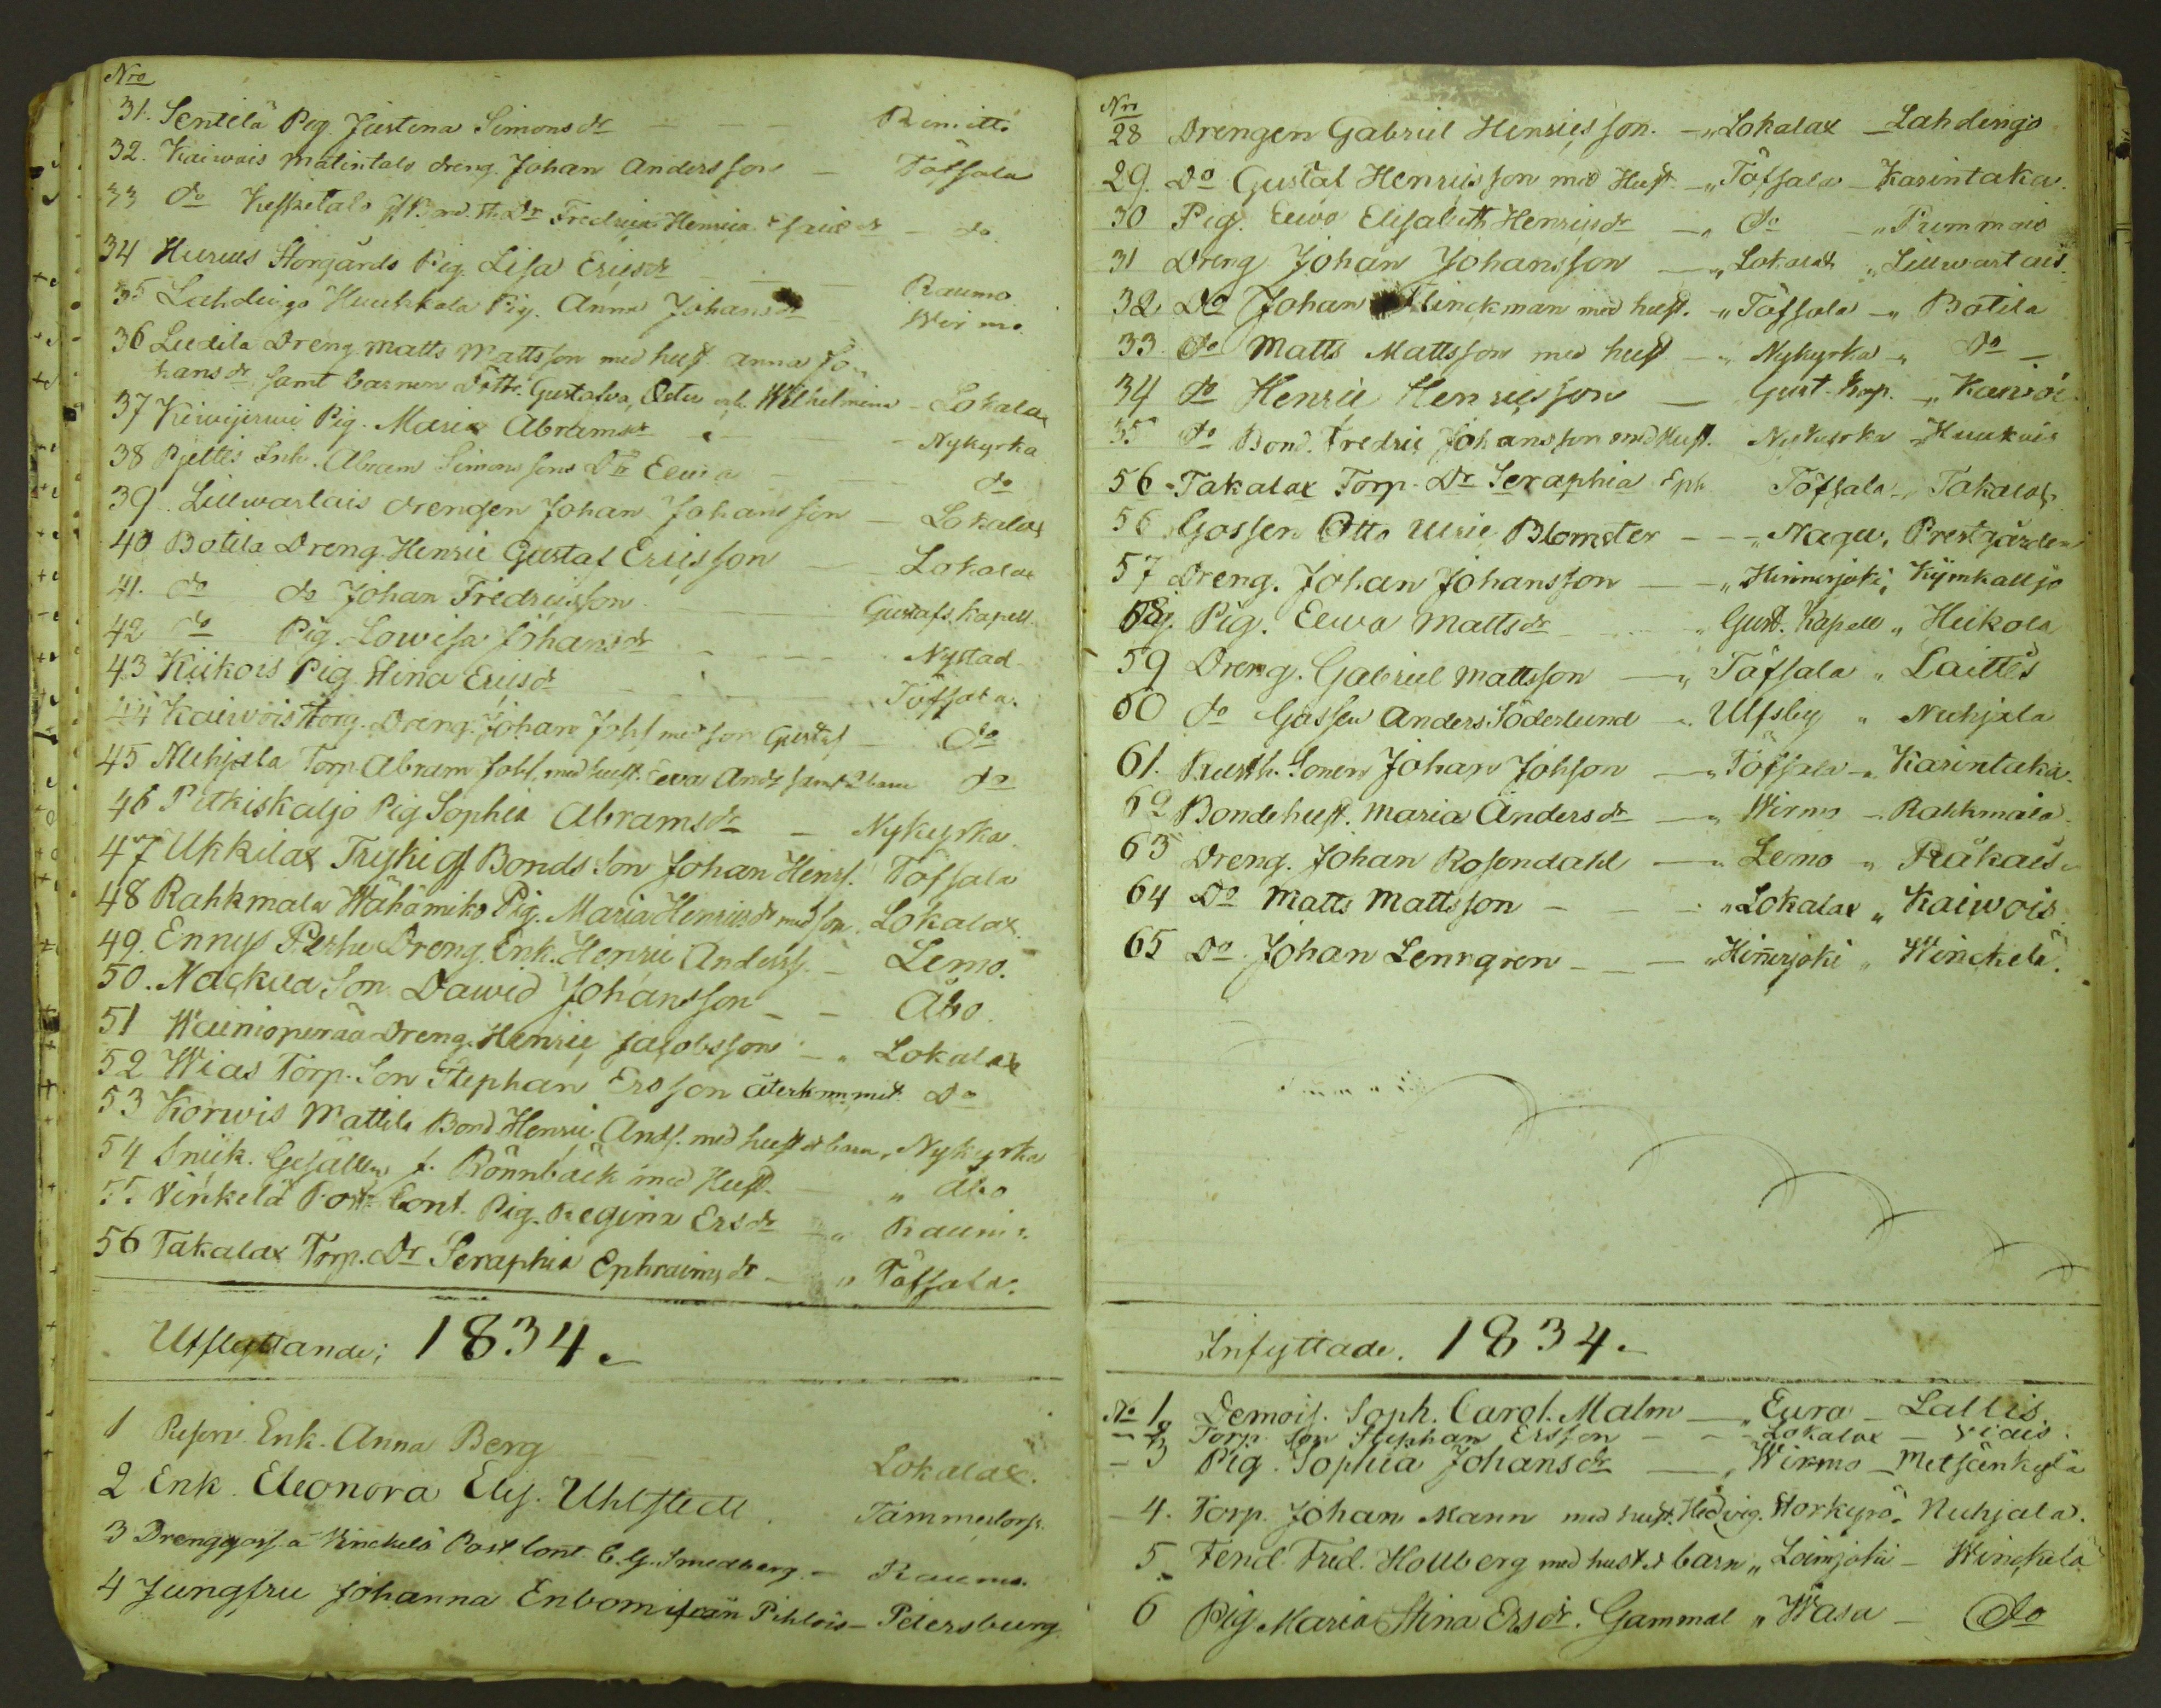 Nro
31. Sentilä Pig. Justina Simonsdr — Rimitto
32. Kaiwois Matintalo dreng. Johan Andersson — Töfsala
33 do Kesketalo Bond. Dr Fredrica Henrica — do
34 Huruus Storgårds Pig. Lisa Ericsdr — Raumo
35 Lahdingo Huukkala Pig. Anna Johansdr — Wirmo
36 Ludila Dreng Matts Mattsson med hust. Anna Jo-
hansdr samt barnen Gustafva, och Wilhelmina — Lokalax
37 Kiwijerwi Pig. Maria Abramsdr — Nykyrka
38 Pjettis Inh. Abram Simonssons Dr Eewa — do
39. Lillwartais drengen Johan Johansson — Lokalax
40 Botila Dreng. Henric Gustaf Ericsson — Lokalax
41. do do Johan Fredricsson — Gustafs Kapell.
42 do Pig. Lowisa Johansdr — Nystad
43 Kiikois Pig. Stina Ericsdr — Töfsala.
44 Kaiwois Dreng. Johan Johs. med son Gustaf — do
45 Nuhjala Torp. Abram Johs. med hust. Eeva Ands samt 2 barn do
46 Pitkiskaljo Pig Sophia Abramsdr — Nykyrka
47 Ukkilax Tryki Bonds Son Johan Henrs. Töfsala
48 Rahkmala Wähämiko Pig. Maria Henricsdr med son. Lokalax.
49. Ennys Perhe Dreng. Enk. Henric Anderss. — Lemo.
50. Nackila Son Dawid Johansson — Åbo.
51 Wainioperää Dreng. Henric Jacobsson — Lokalax
52 Wias Torp. Son Stephan Ersson återkommit. Do
53 Korwis Mattila Bond Henric Ands. med hust. & barn, Nykyrka
54 Snick. Gesällen f. Rönnbäck med Hust. — " Åbo
55 Vinkelä Post Cont. Pig. Regina Ersdr — " Raumo.
56 Takalax Torp. Dr Seraphia Ephraimsdr — " Töfsala.
Utflyttande; 1834.
1 Enk. Anna Berg — Lokalax.
2 Enk. Eleonora Elis. Uhlstedt. Tammerfors.
3 Drenggoss. a Vinckelä Post Cont. C. G. Smedberg. — Raumo.
4 Jungfru Johanna Enbom ifrån Pihlois — Petersburg
Nro
28 Drengen Gabriel Henricsson. — " Lokalax — Lahdingo
29. Do Gustaf Henricsson med Hust. — " Töfsala — Karintaka.
30 Pig. Eewa Elisabeth Henricsdr — " do — " Pummais
31 Dreng Johan Johansson — " Lokalax " Lillwartais.
32 Do Johan Flinckman med hust. — " Töfsala — " Botila
33. do Matts Mattsson med hust — " Nykyrka — " do —
34 do Henric Henricsson — Gust. Kap. — " Kaiwois
35 do Bond. Fredric Johansson med Hust. Nykyrka — Huukais
56 Takalax Torp. Dr Seraphia Eph. Töfsala — " Takalax
56 Gossen Otto Ulric Blomster — " Nagu, Prestgården
57 Dreng. Johan Johansson — " Hinnerjoki, Kijmkalljo
58. Pig. Eewa Mattsdr — " Gust. Kapell " Heikola
59 Dreng. Gabriel Mattsson — " Töfsala " Laittes
60 do Gossen Anders Söderlund — Ulfsby " Nuhjala
61. Rusth. Sonen Johan Johsson — " Töfsala — " Karintaka.
62 Bondehust. Maria Andersdr — " Wirmo — Rahkmala.
63 Dreng. Johan Rosendahl — " Lemo — " Räkais
64 Do Matts Mattsson — " Lokalax " Kaiwois
65 Do. Johan Lenngren — " Hinnerjoki " Winckelä.
Inflyttade. 1834.
No 1. Demois. Soph. Carol. Malm — " Eura — Lallis.
— 2 Torp. son Stephan Ersson — Lokalax — Viais.
— 3 Pig. Sophia Johansdr — " Wirmo — Metsänkylä
— 4. Torp. Johan Mann med hust. Hedvig. Storkyro " Nuhjala.
5. Fend. Fred. Hollberg med hust. & barn " Loimjoki — Winckelä
6 Pig Maria Stina Ersdr. Gammal " Wasa — Do